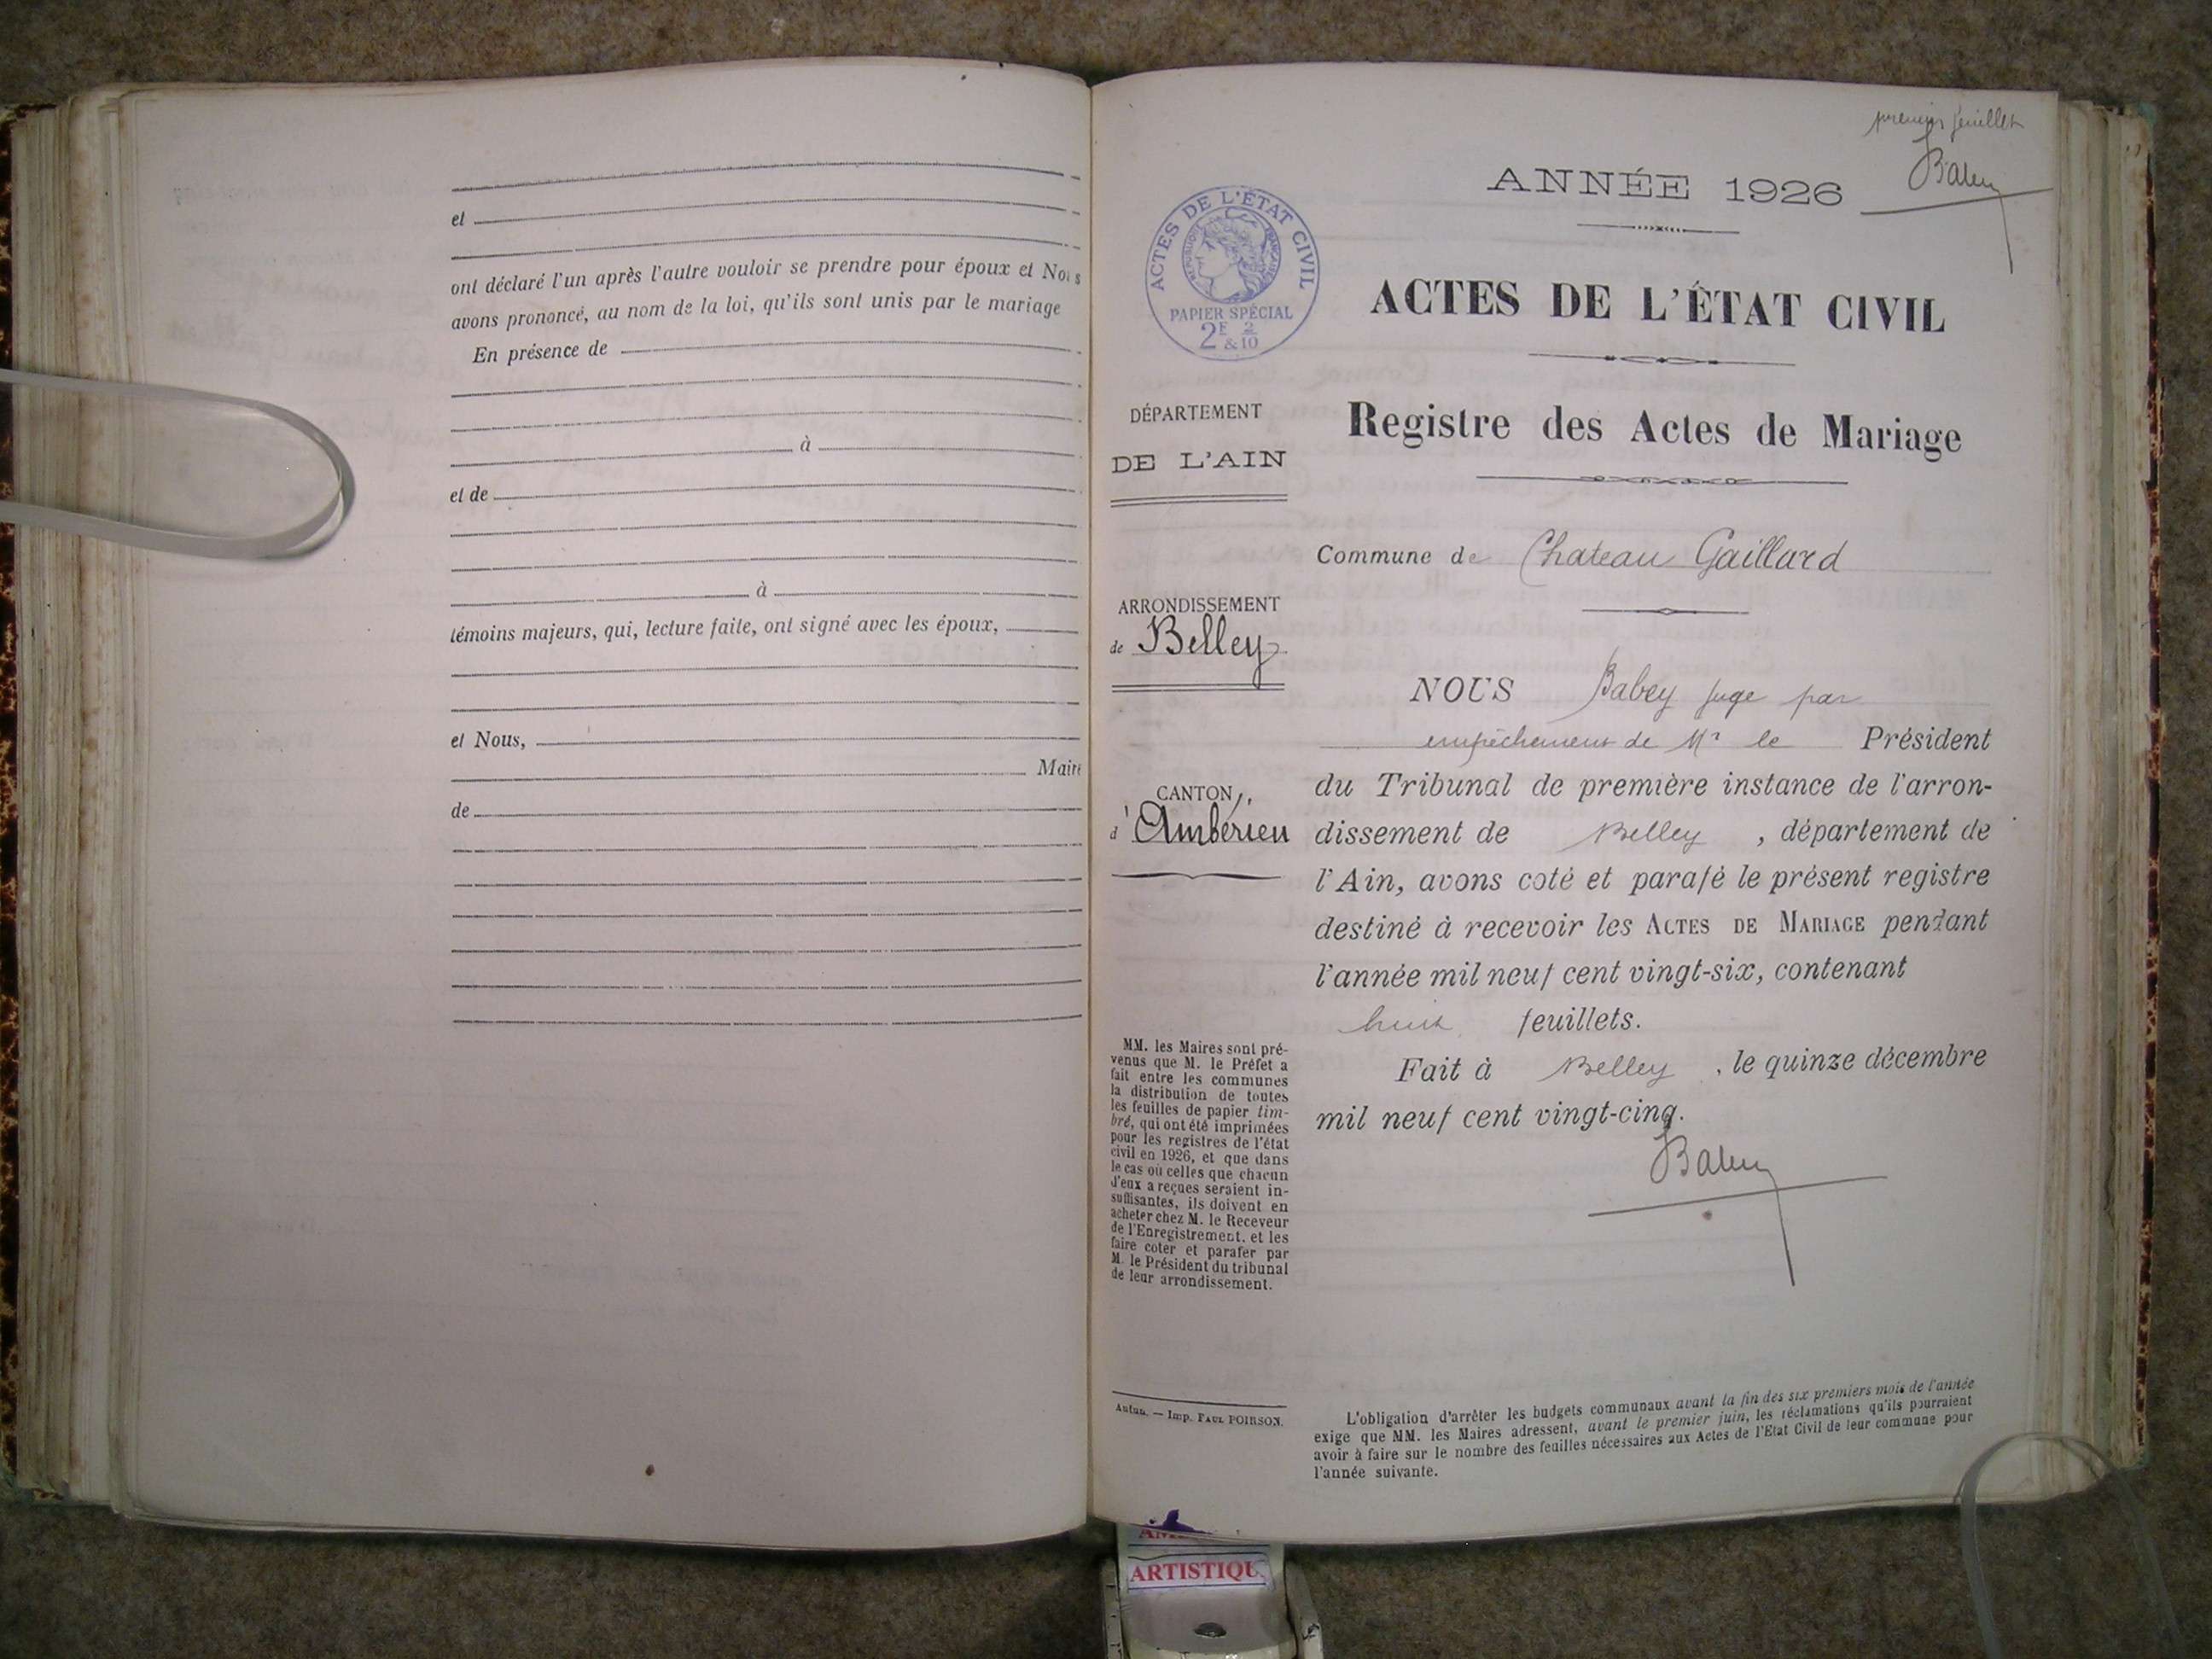 et
ont déclaré l'un après l'autre vouloir se prendre pour époux et Nous
avons prononcé, au nom de la loi, qu'ils sont unis par le mariage
En présence de
à
et de
à
témoins majeurs, qui, lecture faite, ont signé avec les époux,
et Nous,
Maire
de
premier feuillet
Babey
ANNÉE 1926
ACTES DE L'ÉTAT CIVIL
RÉPUBLIQUE FRANÇAISE
PAPIER SPÉCIAL
2F 2
&10
ACTES DE L'ÉTAT CIVIL
Registre des Actes de Mariage
DÉPARTEMENT
DE L'AIN
Commune de Chateau Gaillard
ARRONDISSEMENT
de Belley
CANTON
d'Ambérieu
NOUS Babey juge par
empêchement de Mr le Président
du Tribunal de première instance de l'arron-
dissement de Belley, département de
l'Ain, avons coté et parafé le présent registre
destiné à recevoir les ACTES DE MARIAGE pendant
l'année mil neuf cent vingt-six, contenant
huit feuillets.
Fait à Belley, le quinze décembre
mil neuf cent vingt-cinq.
Babey
MM. les Maires sont pré-
venus que M. le Préfet a
fait entre les communes
la distribution de toutes
les feuilles de papier tim-
bré, qui ont été imprimées
pour les registres de l'état
civil en 1926, et que dans
le cas où celles que chacun
d'eux a reçues seraient in-
suffisantes, ils doivent en
acheter chez M. le Receveur
de l'Enregistrement, et les
faire coter et parafer par
M. le Président du tribunal
de leur arrondissement.
Autun. — Imp. PAUL POIRSON.
L'obligation d'arrêter les budgets communaux avant la fin des six premiers mois de l'année
exige que MM. les Maires adressent, avant le premier juin, les réclamations qu'ils pourraient
avoir à faire sur le nombre des feuilles nécessaires aux Actes de l'Etat Civil de leur commune pour
l'année suivante.
ARTISTIQU